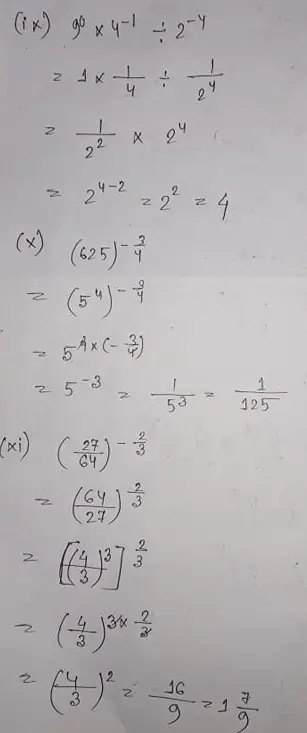 (ix) 9⁰ × 4⁻¹ ÷ 2⁻⁴
= 1 × 1/4 ÷ 1/2⁴
= 1/2² × 2⁴
= 2⁴⁻² = 2² = 4
(x) (625)^-3/4
= (5⁴)^-3/4
= 5^4×(-3/4)
= 5⁻³ = 1/5³ = 1/125
(xi) (27/64)^-2/3
= (64/27)^2/3
= [(4/3)³]^2/3
= (4/3)^3×2/3
= (4/3)² = 16/9 = 1 7/9